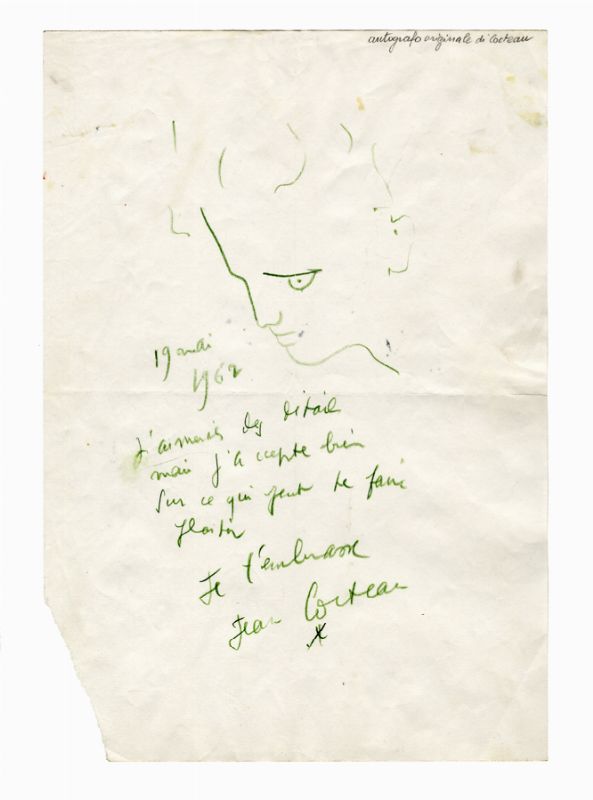 autografo originale di Cocteau
19 mai
1962
J'aimerais des détails
mais j'accepte bien
sur ce qui peut te faire
plaisir
Je t'embrasse
Jean Cocteau